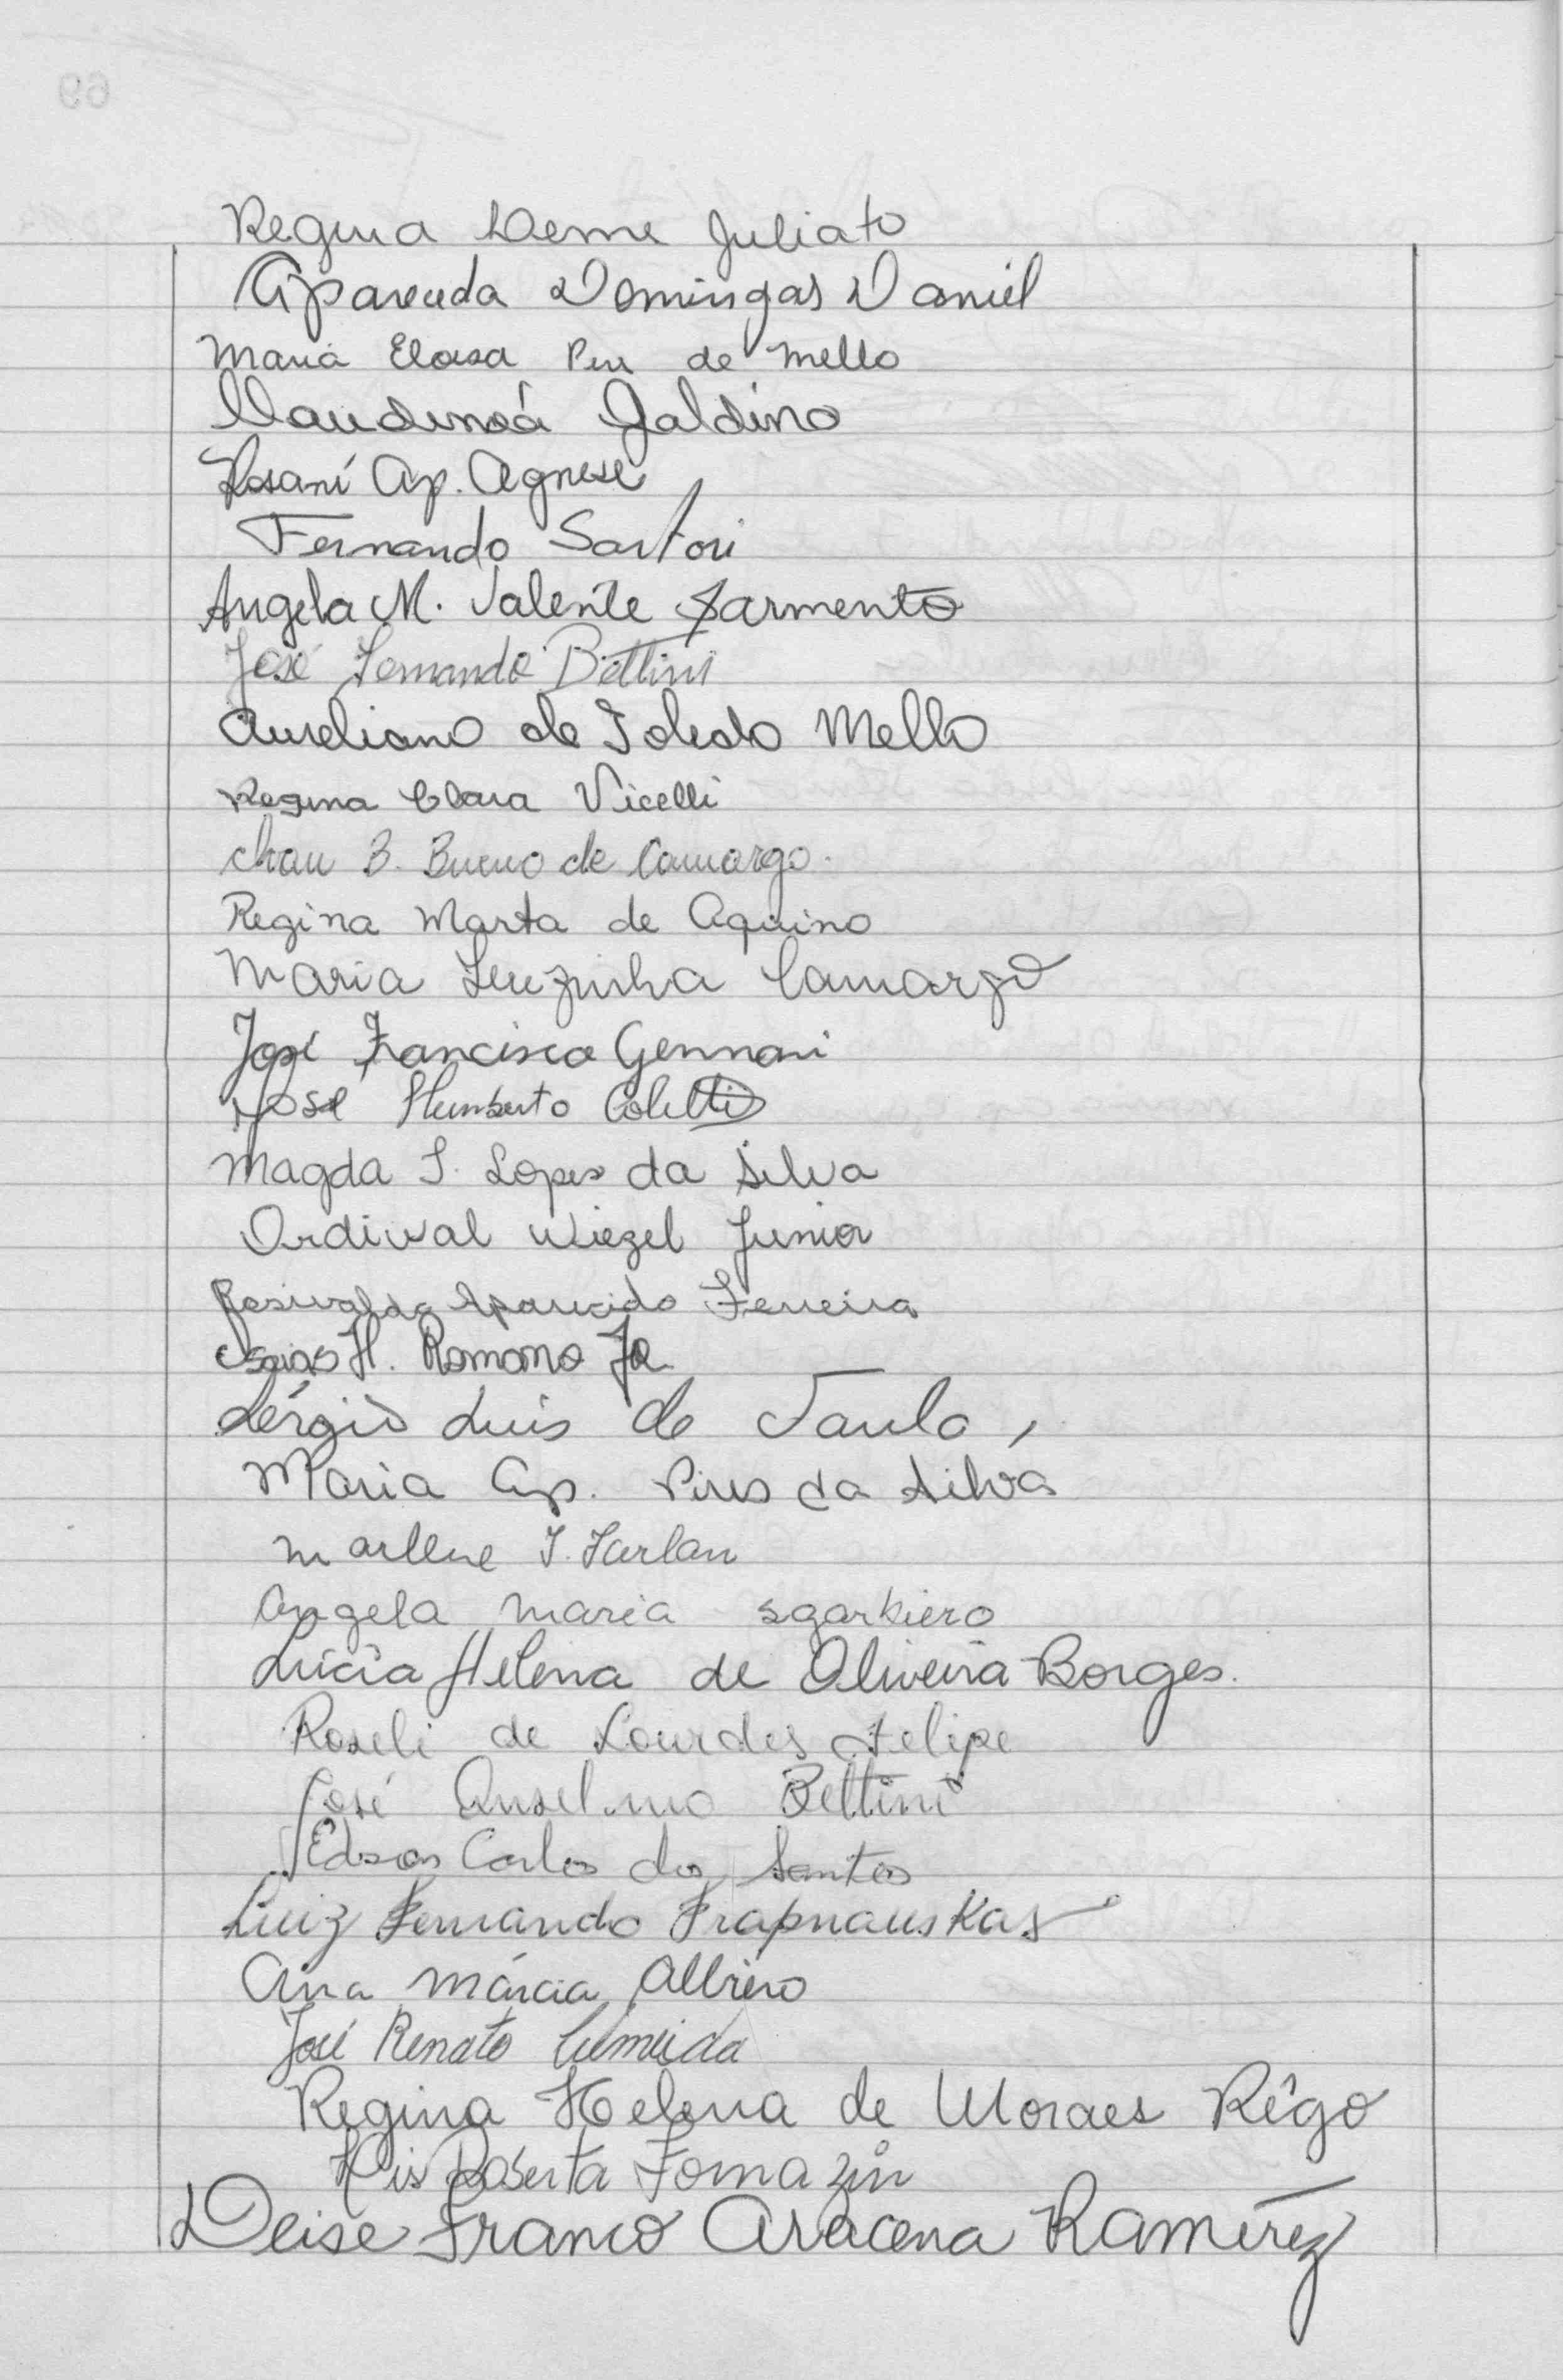 Regina Deme Juliato
Aparecida Domingas Daniel
Maria Eloisa de Mello
Galdino
Rosani Ap. Agnese
Fernando Sartori
Angela M. Valente Sarmento
José Fernando Bettini
Aureliano de Toledo Mello
Regina Clara Vicelli
B. Bueno de Camargo.
Regina Marta de Aquino
Maria Terezinha Camargo
José Francisco Gennari
José Humberto Coletti
Magda T. Lopes da Silva
Ordival Wiezel Junior
Rosivaldo Aparecido Ferreira
Isaias H. Romano Jr.
Sérgio Luis de Paula,
Maria Ap. Pires da Silva
Marlene T. Furlan
Angela Maria Sgarbiero
Lúcia Helena de Oliveira Borges.
Roseli de Lourdes Felipe
José Anselmo Bettini
Edson Carlos dos Santos
Luiz Fernando Trapnauskas
Ana Márcia Albiero
José Renato
Regina Helena de Moraes Rêgo
Roberta Fornazin
Deise Franco Aracena Ramirez